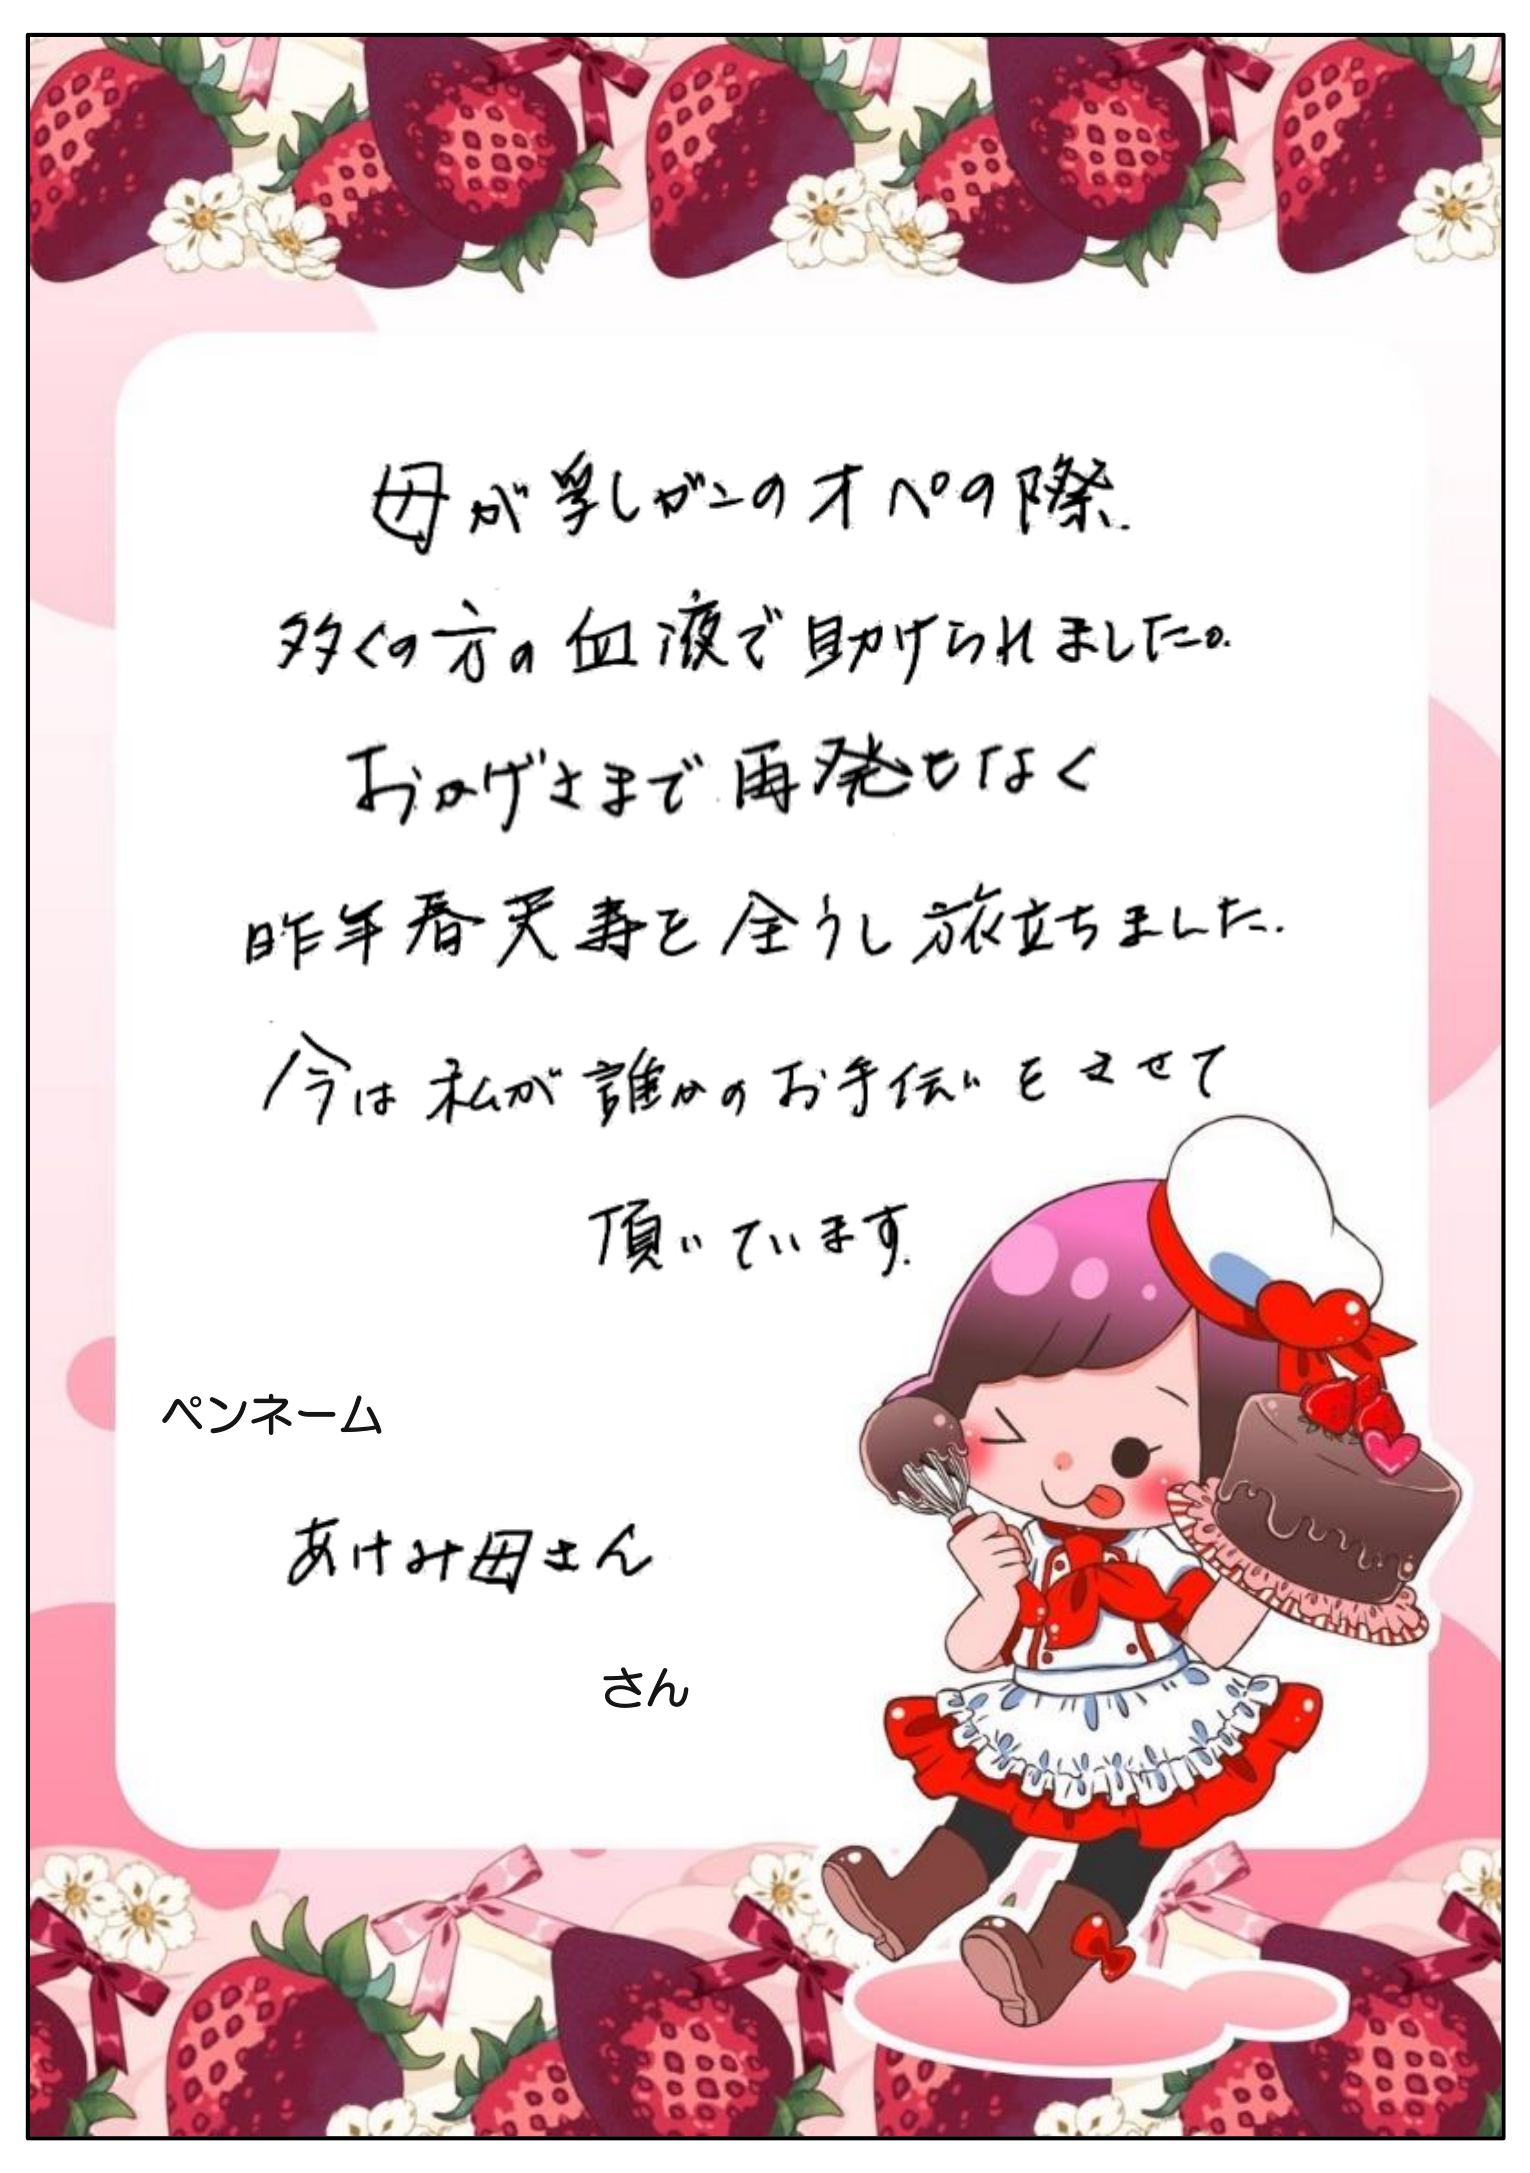 母が乳ガンのオペの際、
多くの方の血液で助けられました。
おかげさまで再発もなく
昨年春天寿を全うし旅立ちました。
今は私が誰かのお手伝いをさせて
頂いています。
ペンネーム
あけみ母さん
さん